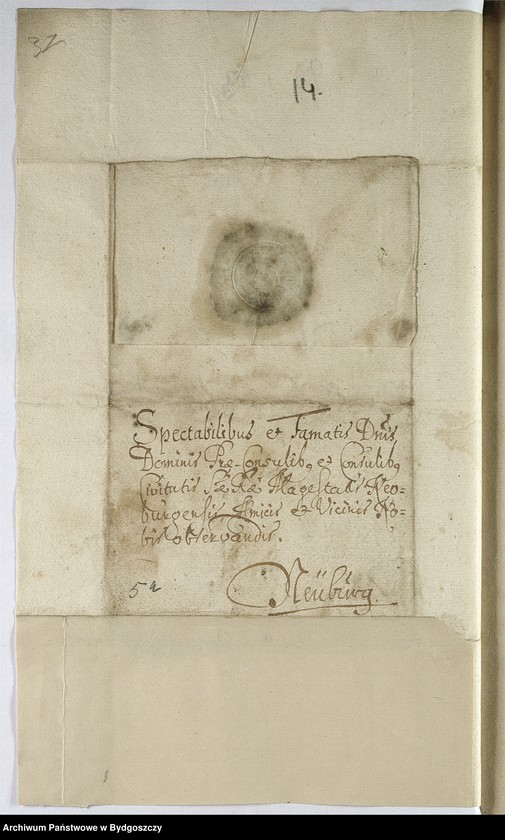 32
14.
Spectabilibus et Famatis Dnis
Dominis Præ-Consulibq et Consulibq
Civitatis Sæ Ræ Magestatis Neo=
burgensis Amicis et Vicinis No=
bis observandis.
Neüburg.
5a
Archiwum Państwowe w Bydgoszczy